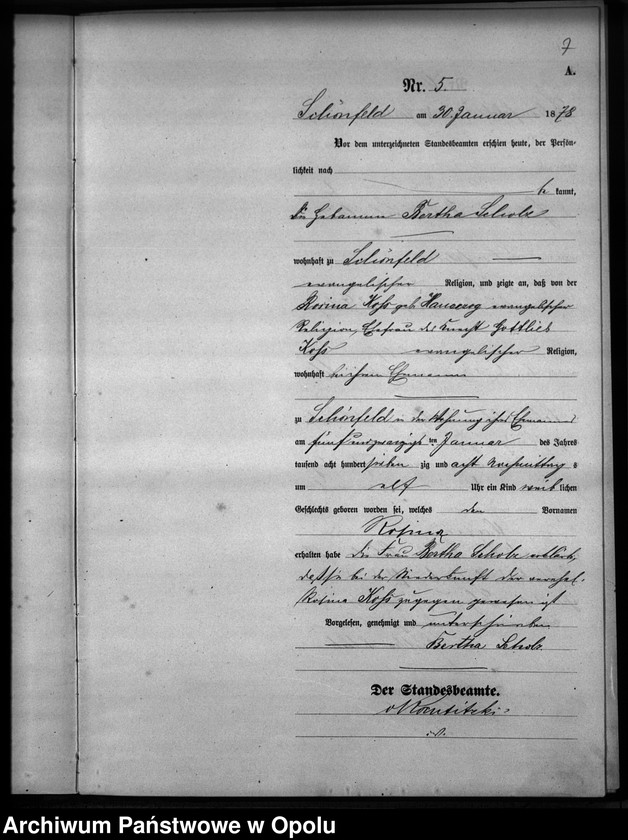 7
A.
Nr. 5.
Schönfeld am 30 Januar 1878
Vor dem unterzeichneten Standesbeamten erschien heute, der Persön-
lichkeit nach
kannt,
die Hebamme Bertha Scholz
wohnhaft zu Schönfeld
evangelischer Religion, und zeigte an, daß von der
Rosina Koss geb. evangelischer
Religion, Ehefrau des Knecht Gottlieb
Koss evangelischer Religion,
wohnhaft bei ihrem Ehemanne
zu Schönfeld in der Wohnung ihres Ehemannes
am fünfundzwanzigsten Januar des Jahres
tausend acht hundert siebenzig und acht Vormittags
um elf Uhr ein Kind weiblichen
Geschlechts geboren worden sei, welches den Vornamen
Rosina
erhalten habe die Frau Bertha Scholz erklärte,
daß sie bei der Niederkunft der verehel.
Rosina Koss zugegen gewesen ist
Vorgelesen, genehmigt und unterschrieben
Bertha Scholz
Der Standesbeamte.
Archiwum Państwowe w Opolu